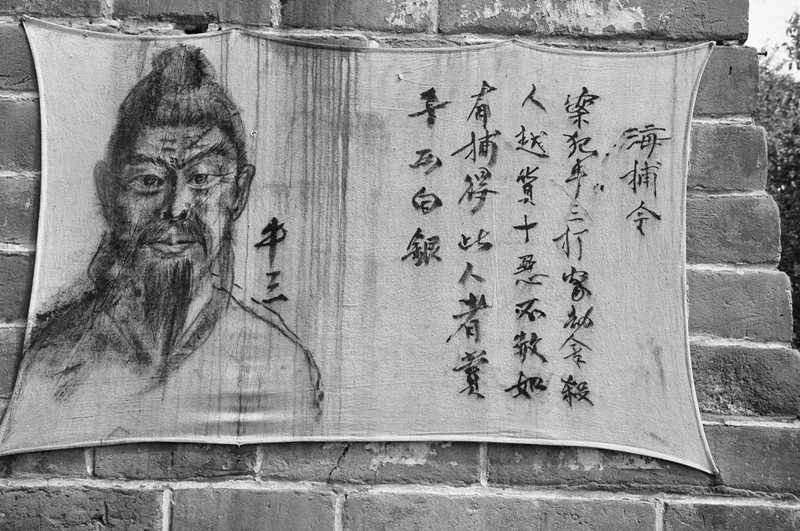 海捕令
案犯牛三打家劫舍殺
人越貨十恶不赦如
有捕得此人者賞
两白銀
牛三